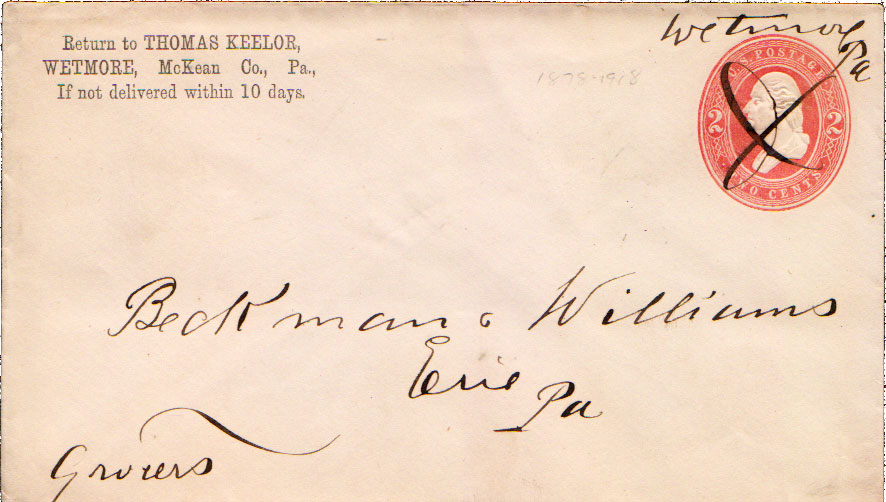 Return to THOMAS KEELOR,
WETMORE, McKean Co., Pa.,
If not delivered within 10 days.
Wetmore
Pa
1878-1918
U.S. POSTAGE
2 2
TWO CENTS
Beckman & Williams
Erie
Pa
Grocers